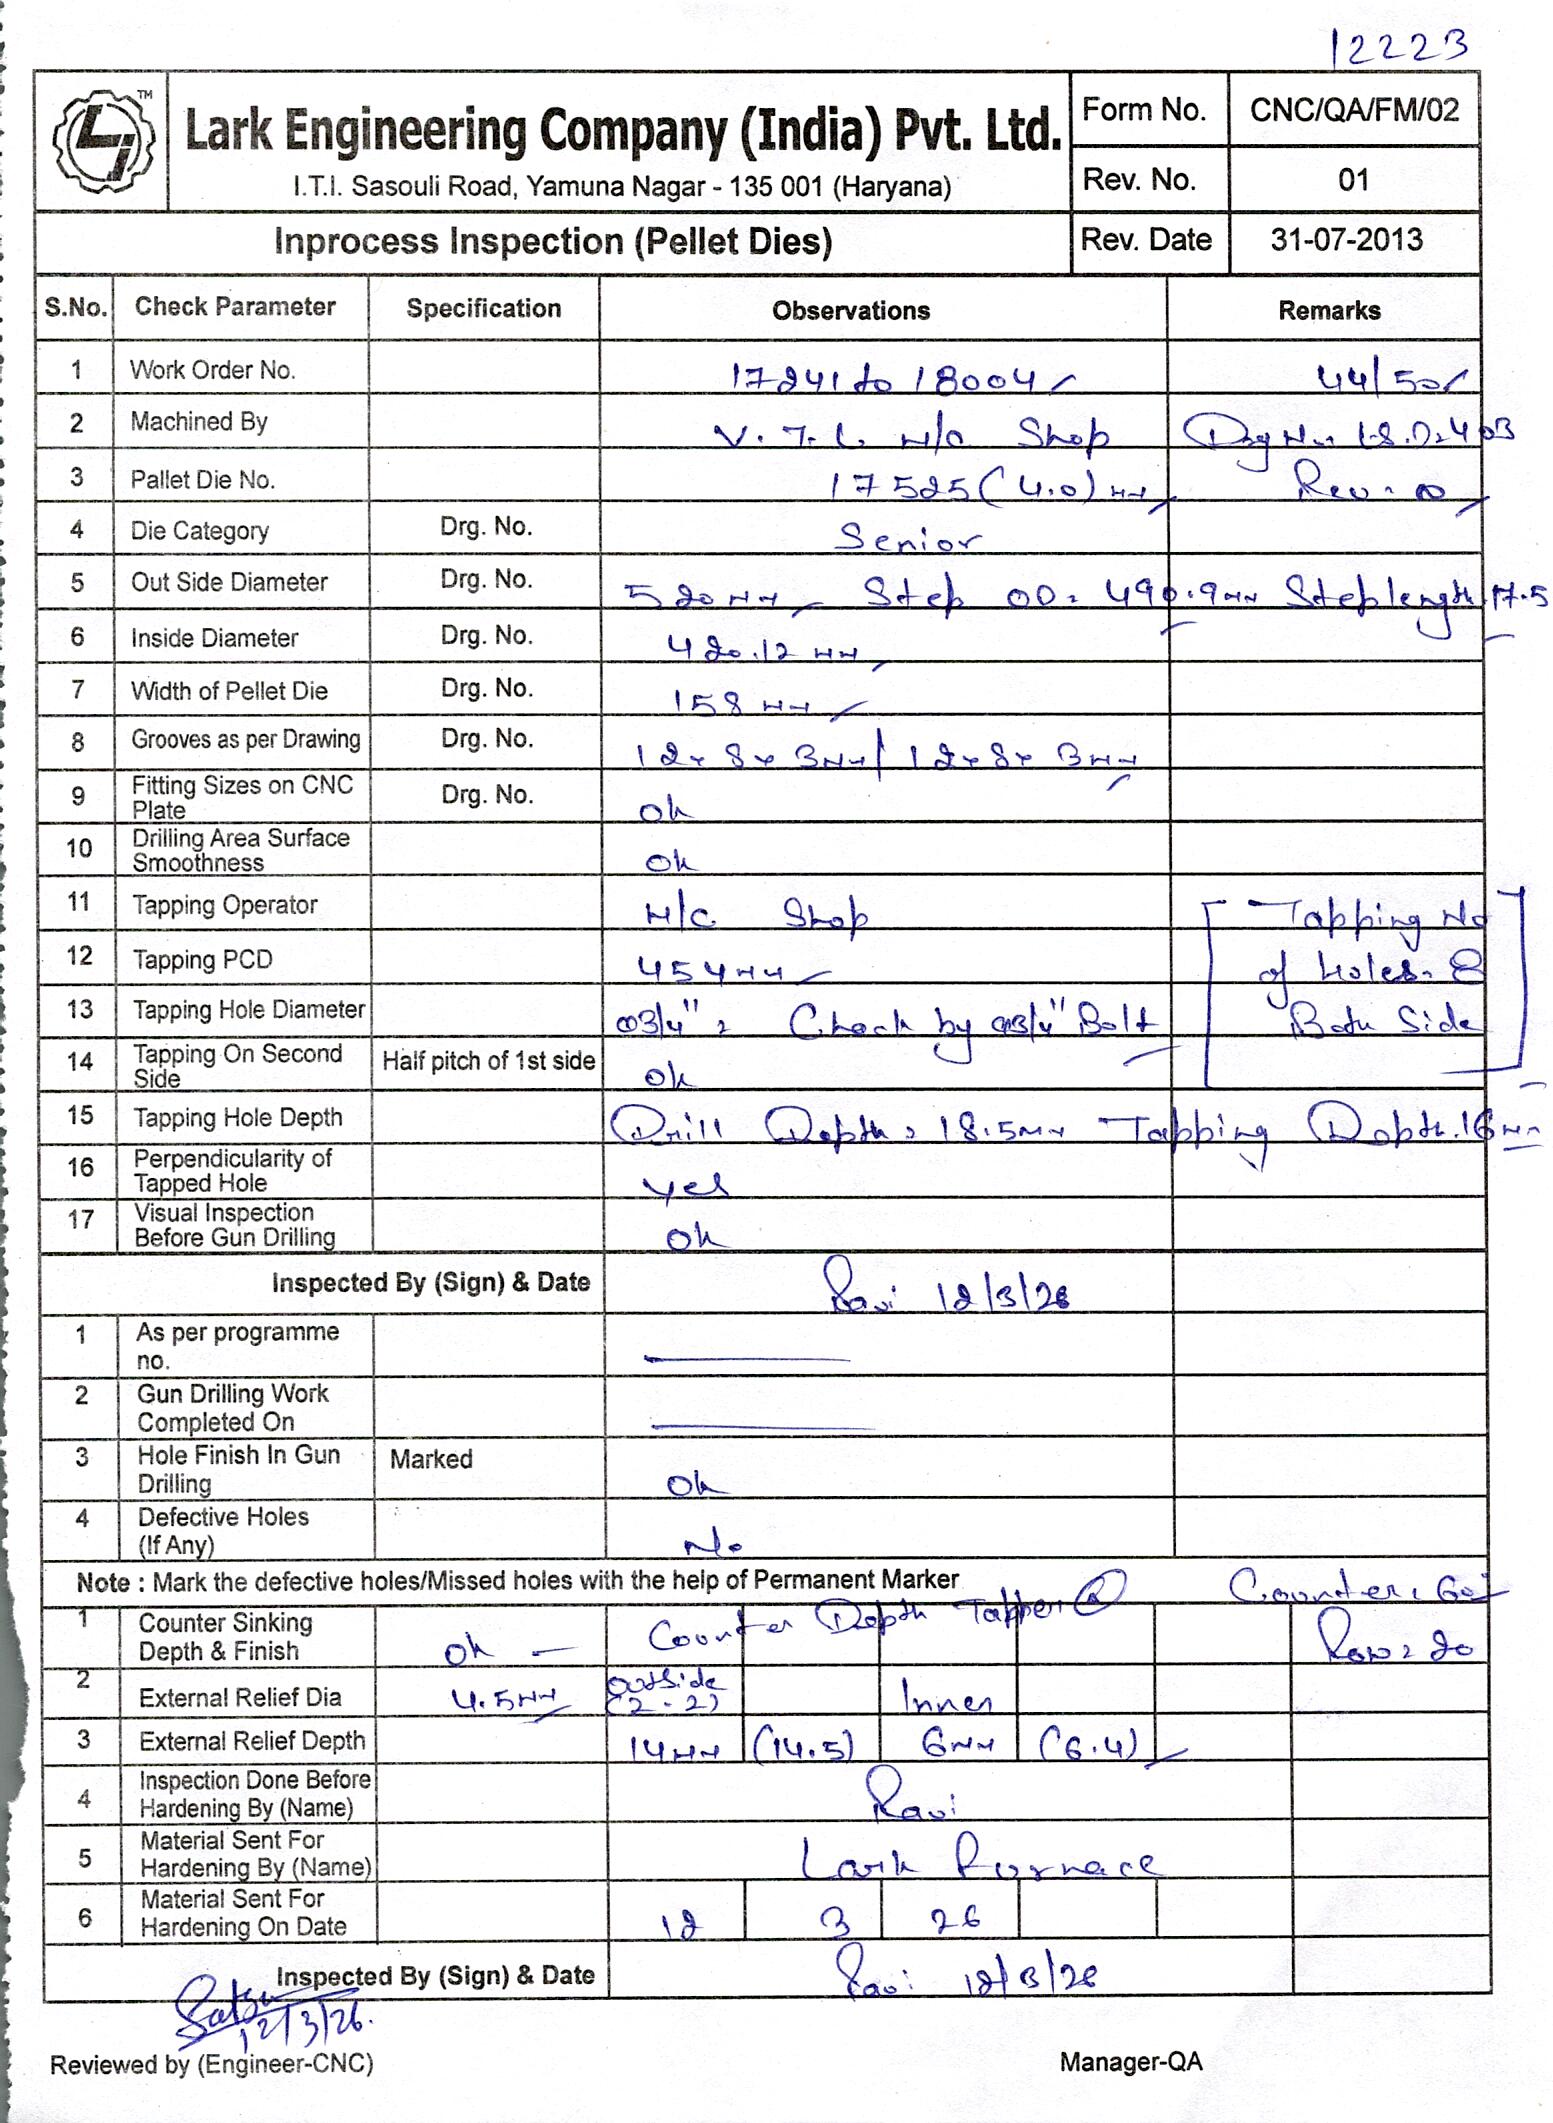 12223
TM
Lark Engineering Company (India) Pvt. Ltd.
I.T.I. Sasouli Road, Yamuna Nagar - 135 001 (Haryana)
Form No. CNC/QA/FM/02
Rev. No. 01
Inprocess Inspection (Pellet Dies)
Rev. Date 31-07-2013
S.No. Check Parameter Specification Observations Remarks
1 Work Order No. 17241 to 18004 44/50
2 Machined By V.T.L M/C Shop Drg No.
3 Pallet Die No. 17525 (4.0) mm Rev. 00
4 Die Category Drg. No. Senior
5 Out Side Diameter Drg. No. 520mm Step OD = 490.9mm Step length 17.5
6 Inside Diameter Drg. No. 420.12 mm
7 Width of Pellet Die Drg. No. 158 mm
8 Grooves as per Drawing Drg. No. 12x8x3mm / 12x8x3mm
9 Fitting Sizes on CNC Plate Drg. No. Ok
10 Drilling Area Surface Smoothness Ok
11 Tapping Operator M/C Shop Tapping No
12 Tapping PCD 454mm of holes = 8
13 Tapping Hole Diameter Ø3/4" = Check by Ø3/4" Bolt Both Side
14 Tapping On Second Side Half pitch of 1st side Ok
15 Tapping Hole Depth Drill Depth = 18.5mm Tapping Depth.16mm
16 Perpendicularity of Tapped Hole yes
17 Visual Inspection Before Gun Drilling Ok
Inspected By (Sign) & Date Ravi 12/3/26
1 As per programme no.
2 Gun Drilling Work Completed On
3 Hole Finish In Gun Drilling Marked Ok
4 Defective Holes (If Any) No
Note : Mark the defective holes/Missed holes with the help of Permanent Marker Counter = 60°
1 Counter Sinking Depth & Finish Ok Counter Depth Tapper Row = 20
2 External Relief Dia 4.5mm Outside (2-2) Inner
3 External Relief Depth 14mm (14.5) 6mm (6.4)
4 Inspection Done Before Hardening By (Name) Ravi
5 Material Sent For Hardening By (Name) Lark Furnace
6 Material Sent For Hardening On Date 12 3 26
Inspected By (Sign) & Date Ravi 12/3/26
12/3/26.
Reviewed by (Engineer-CNC) Manager-QA